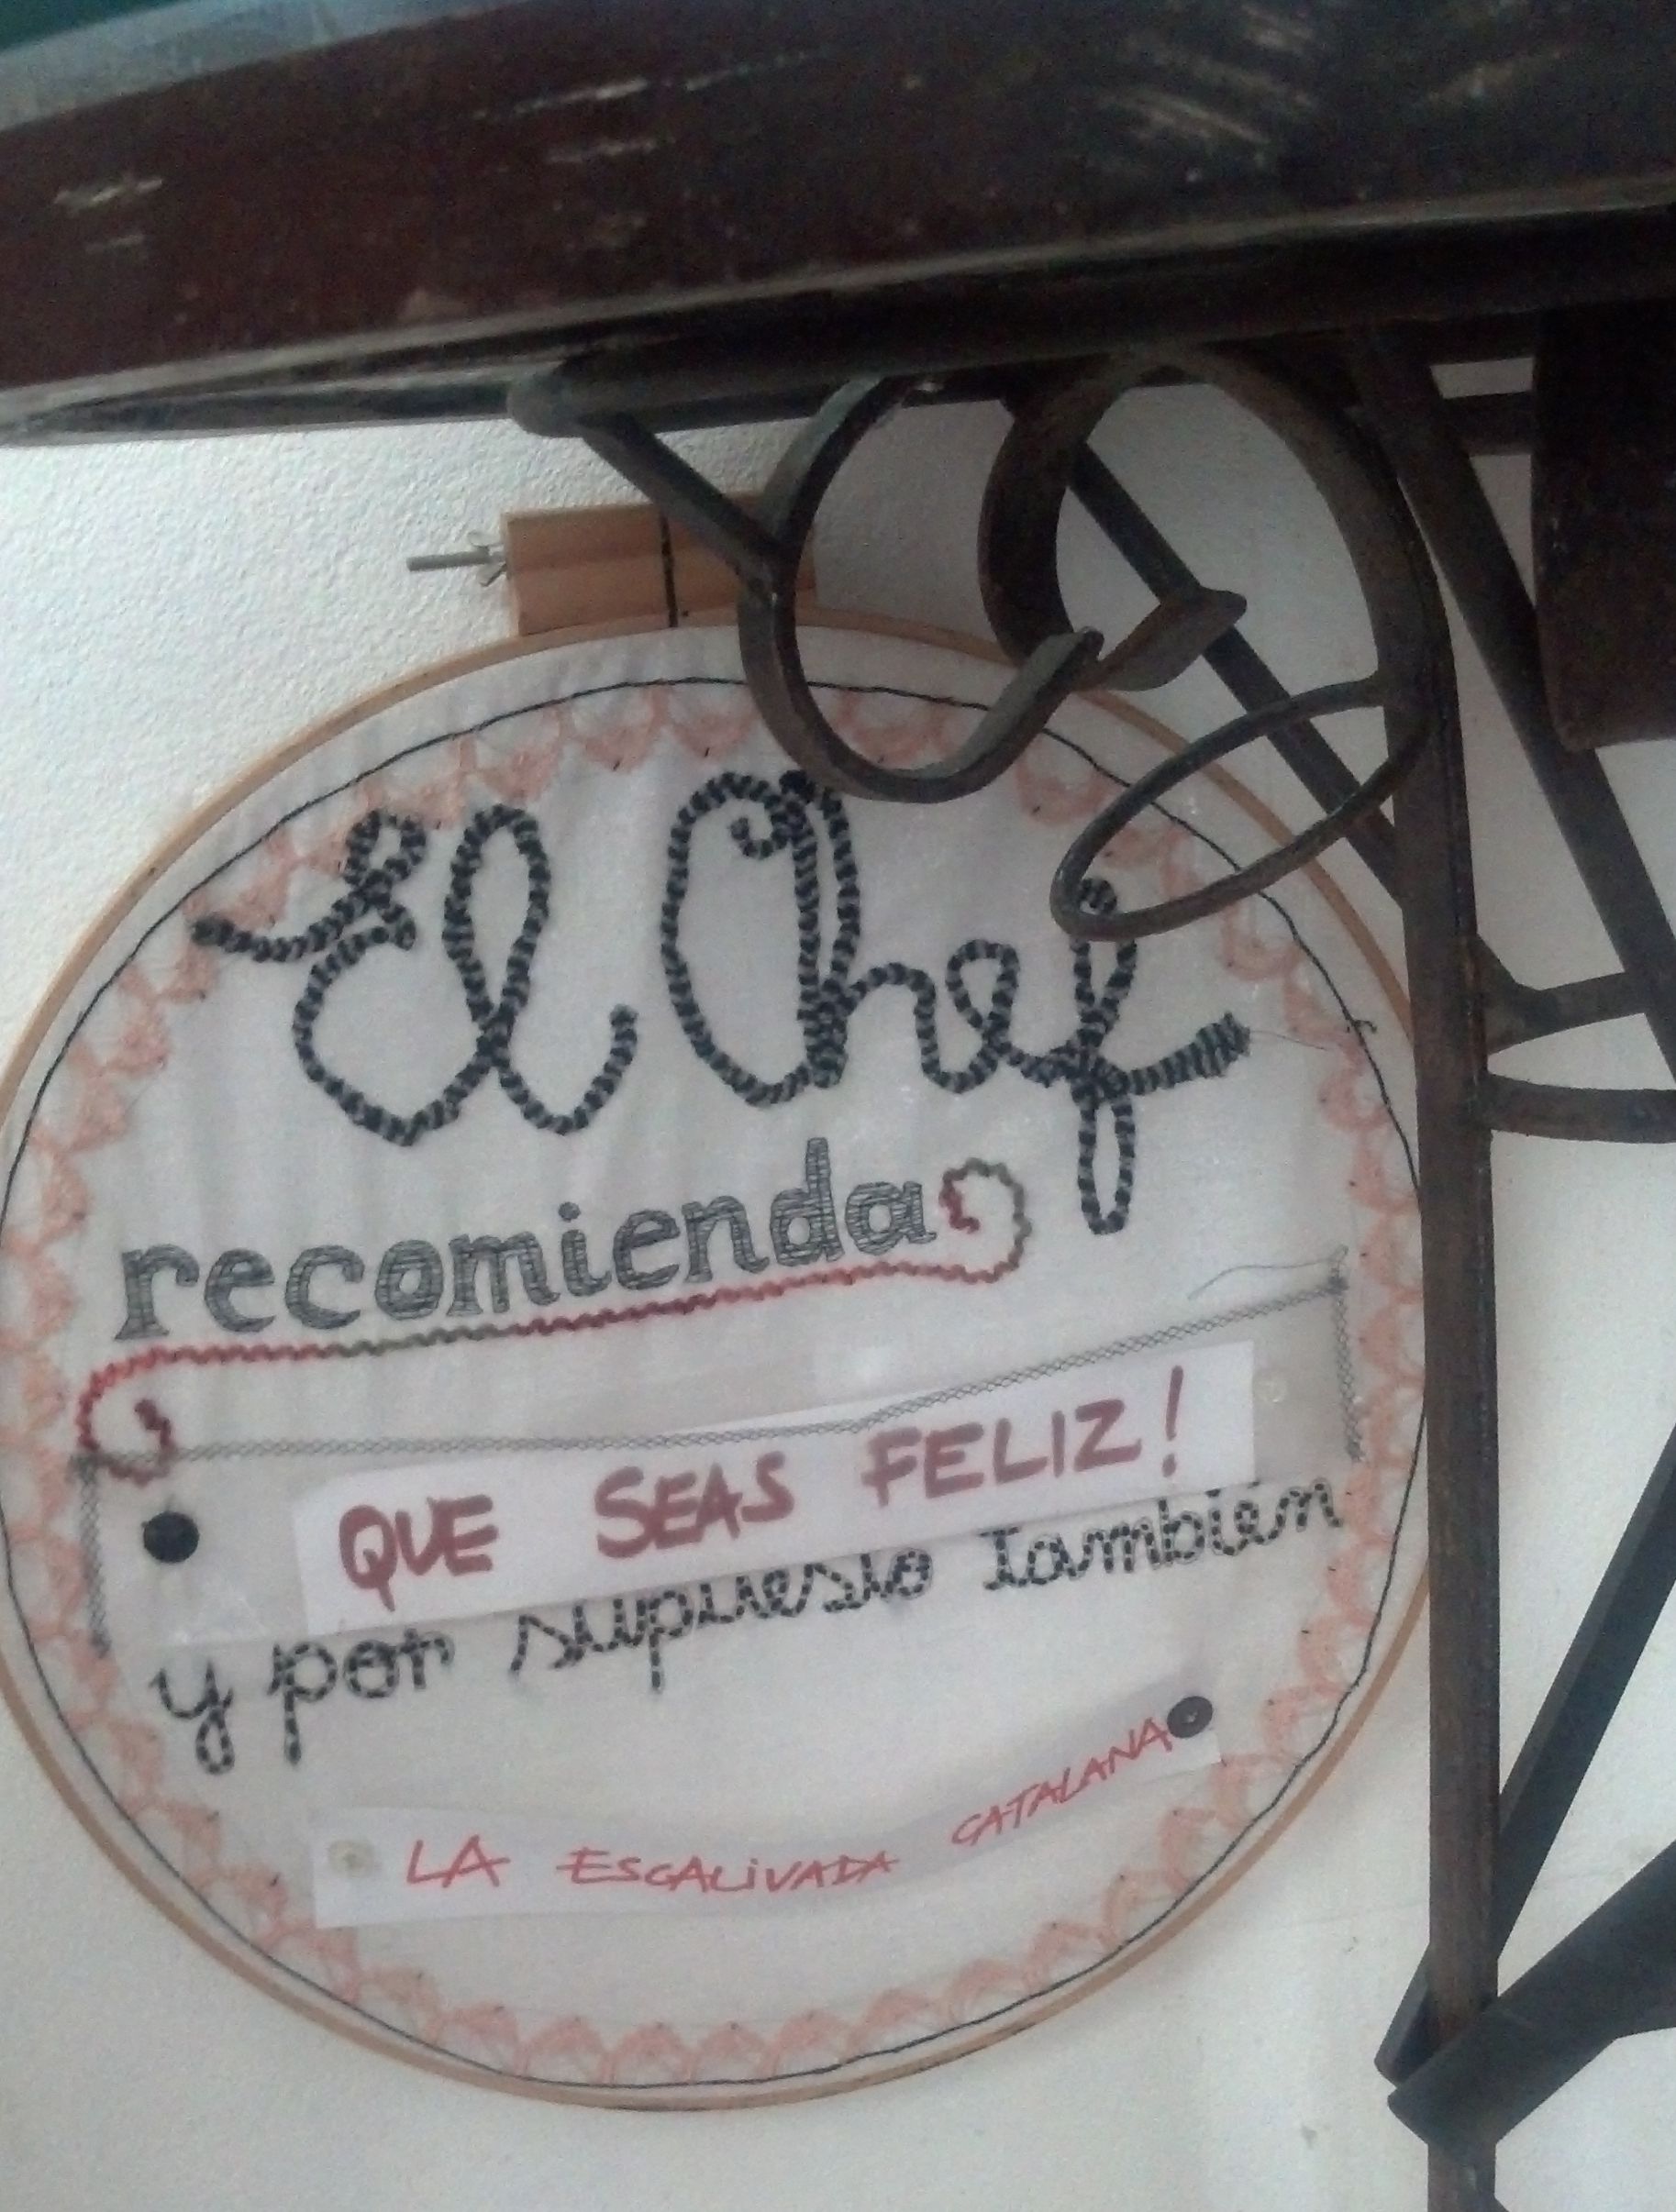 El Chef
recomienda
QUE SEAS FELIZ!
y por supuesto también
LA ESCALIVADA CATALANA